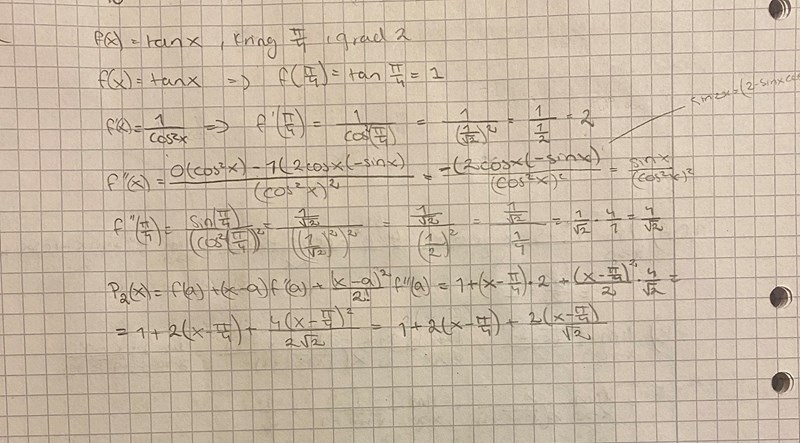 f(x) = tanx , kring π/4 , grad 2
f(x) = tanx => f(π/4) = tan π/4 = 1
sin2x = (2·sinxcos
f'(x) = 1/cos²x => f'(π/4) = 1/cos²(π/4) = 1/(1/√2)² = 1/(1/2) = 2
f''(x) = (0(cos²x) - 1(2cosx(-sinx))/(cos²x)² = (-(2cosx(-sinx))/(cos²x)² = sinx/(cos²x)²
f''(π/4) = sin(π/4)/(cos²(π/4))² = (1/√2)/((1/√2)²)² = (1/√2)/(1/2)² = (1/√2)/(1/4) = 1/√2 · 4/1 = 4/√2
P₂(x) = f(a) + (x-a)f'(a) + (x-a)²/2! f''(a) = 1 + (x-π/4)·2 + (x-π/4)²/2 · 4/√2 =
= 1 + 2(x-π/4) + 4(x-π/4)²/2√2 = 1 + 2(x-π/4) + 2(x-π/4)/√2